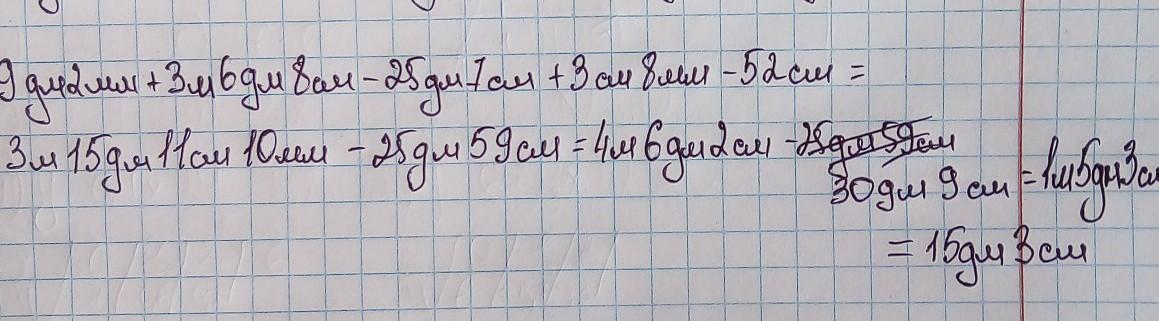 9 дм 2 мм + 3 м 6 дм 8 см - 25 дм 7 см + 3 см 8 мм - 52 см =
3 м 15 дм 11 см 10 мм - 25 дм 59 см = 4 м 6 дм 2 см - 25 дм 59 см
30 дм 9 см = 1 м 5 дм 3 см
= 15 дм 3 см